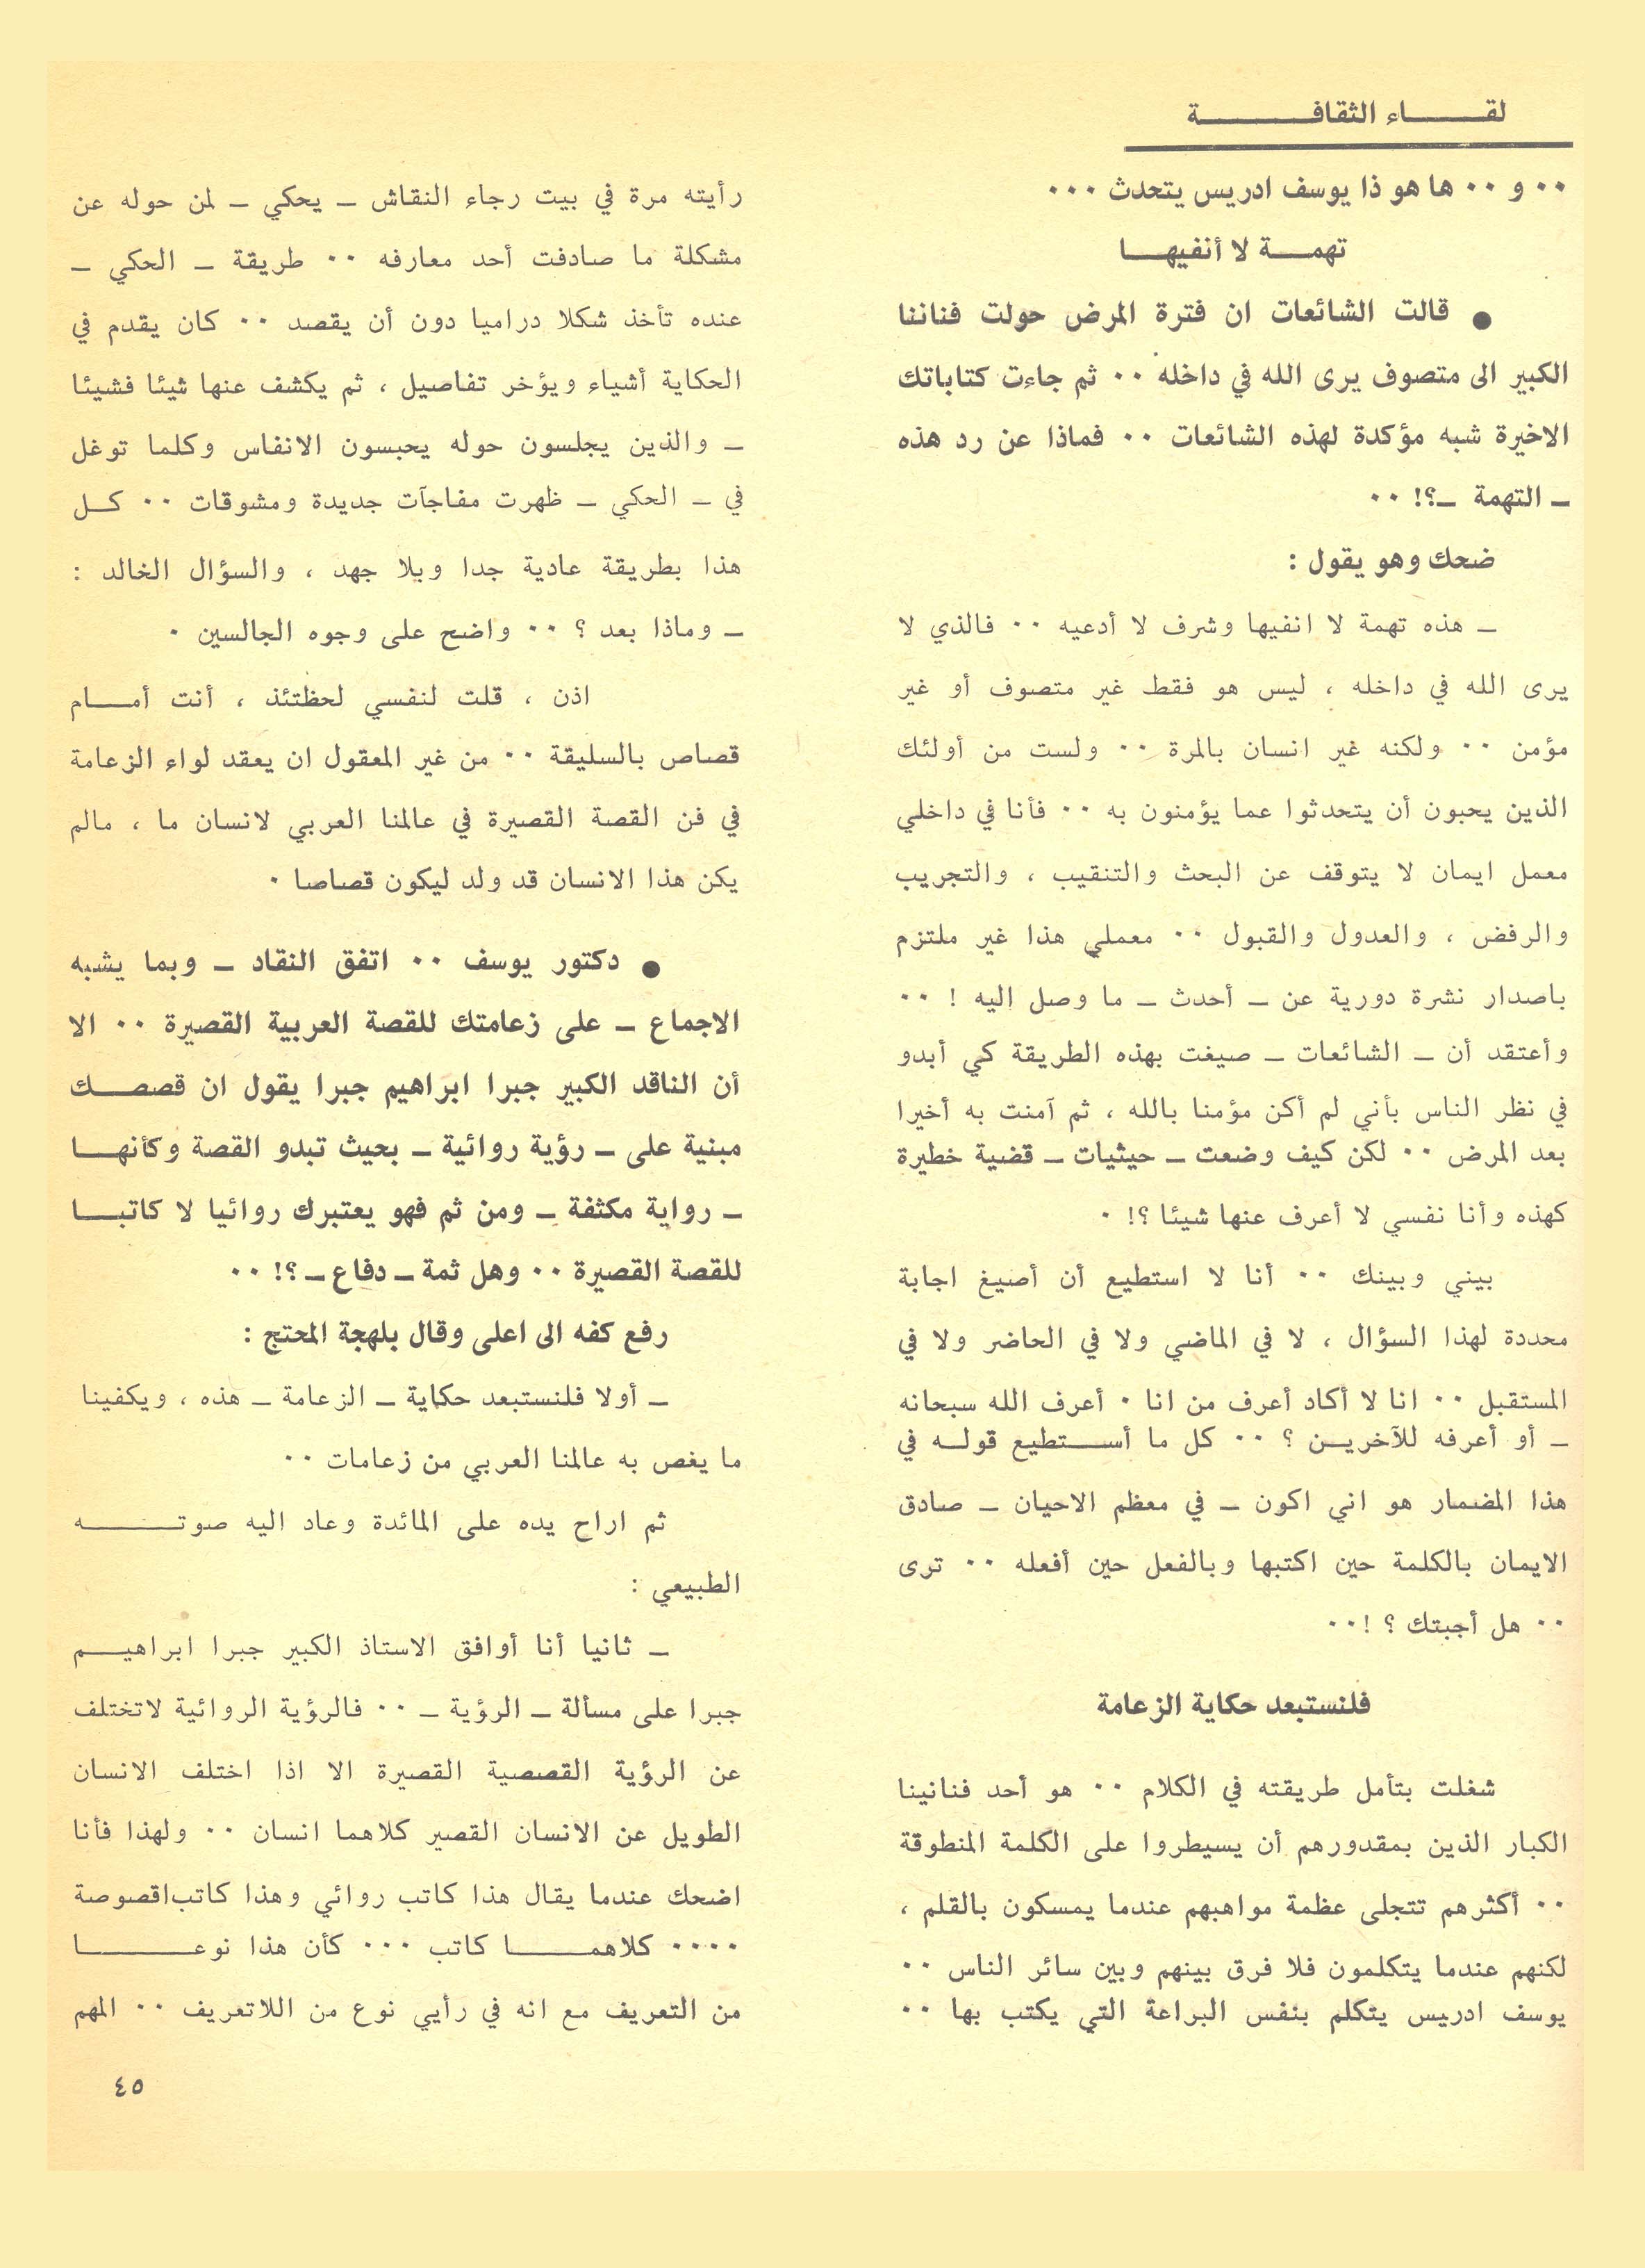 لقاء الثقافة
٠٠ و ٠٠ ها هو ذا يوسف ادريس يتحدث ٠٠٠
تهمة لا أنفيها
● قالت الشائعات ان فترة المرض حولت فناننا
الكبير الى متصوف يرى الله في داخله ٠٠ ثم جاءت كتاباتك
الاخيرة شبه مؤكدة لهذه الشائعات ٠٠ فماذا عن رد هذه
ـ التهمة ـ؟! ٠٠
ضحك وهو يقول :
ـ هذه تهمة لا انفيها وشرف لا أدعيه ٠٠ فالذي لا
يرى الله في داخله ، ليس هو فقط غير متصوف أو غير
مؤمن ٠٠ ولكنه غير انسان بالمرة ٠٠ ولست من أولئك
الذين يحبون أن يتحدثوا عما يؤمنون به ٠٠ فأنا في داخلي
معمل ايمان لا يتوقف عن البحث والتنقيب ، والتجريب
والرفض ، والعدول والقبول ٠٠ معملي هذا غير ملتزم
باصدار نشرة دورية عن ـ أحدث ـ ما وصل اليه ! ٠٠
وأعتقد أن ـ الشائعات ـ صيغت بهذه الطريقة كي أبدو
في نظر الناس بأني لم أكن مؤمنا بالله ، ثم آمنت به أخيرا
بعد المرض ٠٠ لكن كيف وضعت ـ حيثيات ـ قضية خطيرة
كهذه وأنا نفسي لا أعرف عنها شيئا ؟! ٠
بيني وبينك ٠٠ أنا لا استطيع أن أصيغ اجابة
محددة لهذا السؤال ، لا في الماضي ولا في الحاضر ولا في
المستقبل ٠٠ انا لا أكاد أعرف من انا ٠ أعرف الله سبحانه
ـ أو أعرفه للآخرين ؟ ٠٠ كل ما أستطيع قوله في
هذا المضمار هو اني اكون ـ في معظم الاحيان ـ صادق
الايمان بالكلمة حين اكتبها وبالفعل حين أفعله ٠٠ ترى
٠٠ هل أجبتك ؟ !٠٠
فلنستبعد حكاية الزعامة
شغلت بتأمل طريقته في الكلام ٠٠ هو أحد فنانينا
الكبار الذين بمقدورهم أن يسيطروا على الكلمة المنطوقة
٠٠ أكثرهم تتجلى عظمة مواهبهم عندما يمسكون بالقلم ،
لكنهم عندما يتكلمون فلا فرق بينهم وبين سائر الناس ٠٠
يوسف ادريس يتكلم بنفس البراعة التي يكتب بها ٠٠
رأيته مرة في بيت رجاء النقاش ـ يحكي ـ لمن حوله عن
مشكلة ما صادفت أحد معارفه ٠٠ طريقة ـ الحكي ـ
عنده تأخذ شكلا دراميا دون أن يقصد ٠٠ كان يقدم في
الحكاية أشياء ويؤخر تفاصيل ، ثم يكشف عنها شيئا فشيئا
ـ والذين يجلسون حوله يحبسون الانفاس وكلما توغل
في ـ الحكي ـ ظهرت مفاجآت جديدة ومشوقات ٠٠ كل
هذا بطريقة عادية جدا وبلا جهد ، والسؤال الخالد :
ـ وماذا بعد ؟ ٠٠ واضح على وجوه الجالسين ٠
اذن ، قلت لنفسي لحظتئذ ، أنت أمام
قصاص بالسليقة ٠٠ من غير المعقول ان يعقد لواء الزعامة
في فن القصة القصيرة في عالمنا العربي لانسان ما ، مالم
يكن هذا الانسان قد ولد ليكون قصاصا ٠
● دكتور يوسف ٠٠ اتفق النقاد ـ وبما يشبه
الاجماع ـ على زعامتك للقصة العربية القصيرة ٠٠ الا
أن الناقد الكبير جبرا ابراهيم جبرا يقول ان قصصك
مبنية على ـ رؤية روائية ـ بحيث تبدو القصة وكأنها
ـ رواية مكثفة ـ ومن ثم فهو يعتبرك روائيا لا كاتبا
للقصة القصيرة ٠٠ وهل ثمة ـ دفاع ـ؟! ٠٠
رفع كفه الى اعلى وقال بلهجة المحتج :
ـ أولا فلنستبعد حكاية ـ الزعامة ـ هذه ، ويكفينا
ما يغص به عالمنا العربي من زعامات ٠٠
ثم اراح يده على المائدة وعاد اليه صوته
الطبيعي :
ـ ثانيا أنا أوافق الاستاذ الكبير جبرا ابراهيم
جبرا على مسألة ـ الرؤية ـ ٠٠ فالرؤية الروائية لاتختلف
عن الرؤية القصصية القصيرة الا اذا اختلف الانسان
الطويل عن الانسان القصير كلاهما انسان ٠٠ ولهذا فأنا
اضحك عندما يقال هذا كاتب روائي وهذا كاتب اقصوصة
٠٠٠٠ كلاهما كاتب ٠٠٠ كأن هذا نوعا
من التعريف مع انه في رأيي نوع من اللاتعريف ٠٠ المهم
٤٥